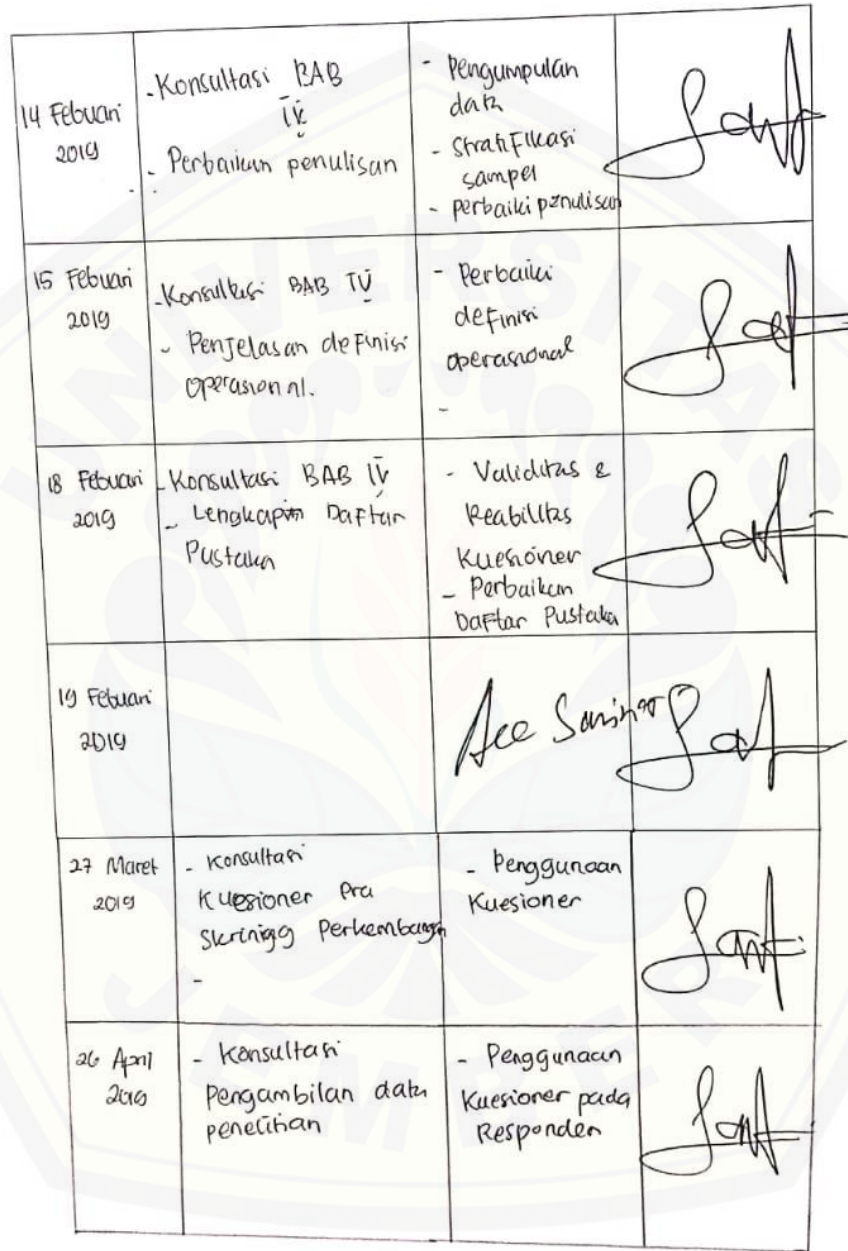 14 Febuari
2019
- Konsultasi BAB
IV
- Perbaikan penulisan
- Pengumpulan
data
- Stratifikasi
sampel
- perbaiki penulisan
15 Febuari
2019
- Konsultasi BAB IV
- Penjelasan definisi
operasional.
- Perbaiki
definisi
operasional
-
18 Febuari
2019
- Konsultasi BAB IV
- Lengkapin Daftar
Pustaka
- Validitas &
Reabilitas
Kuesioner
- Perbaikan
Daftar Pustaka
19 Febuari
2019
Acc
27 Maret
2019
- Konsultasi
Kuesioner Pra
Skrinigg Perkembangn
-
- Penggunaan
Kuesioner
26 April
2019
- Konsultasi
Pengambilan data
penelitian
- Penggunaan
Kuesioner pada
Responden
UNIVERSITAS
JEMBER